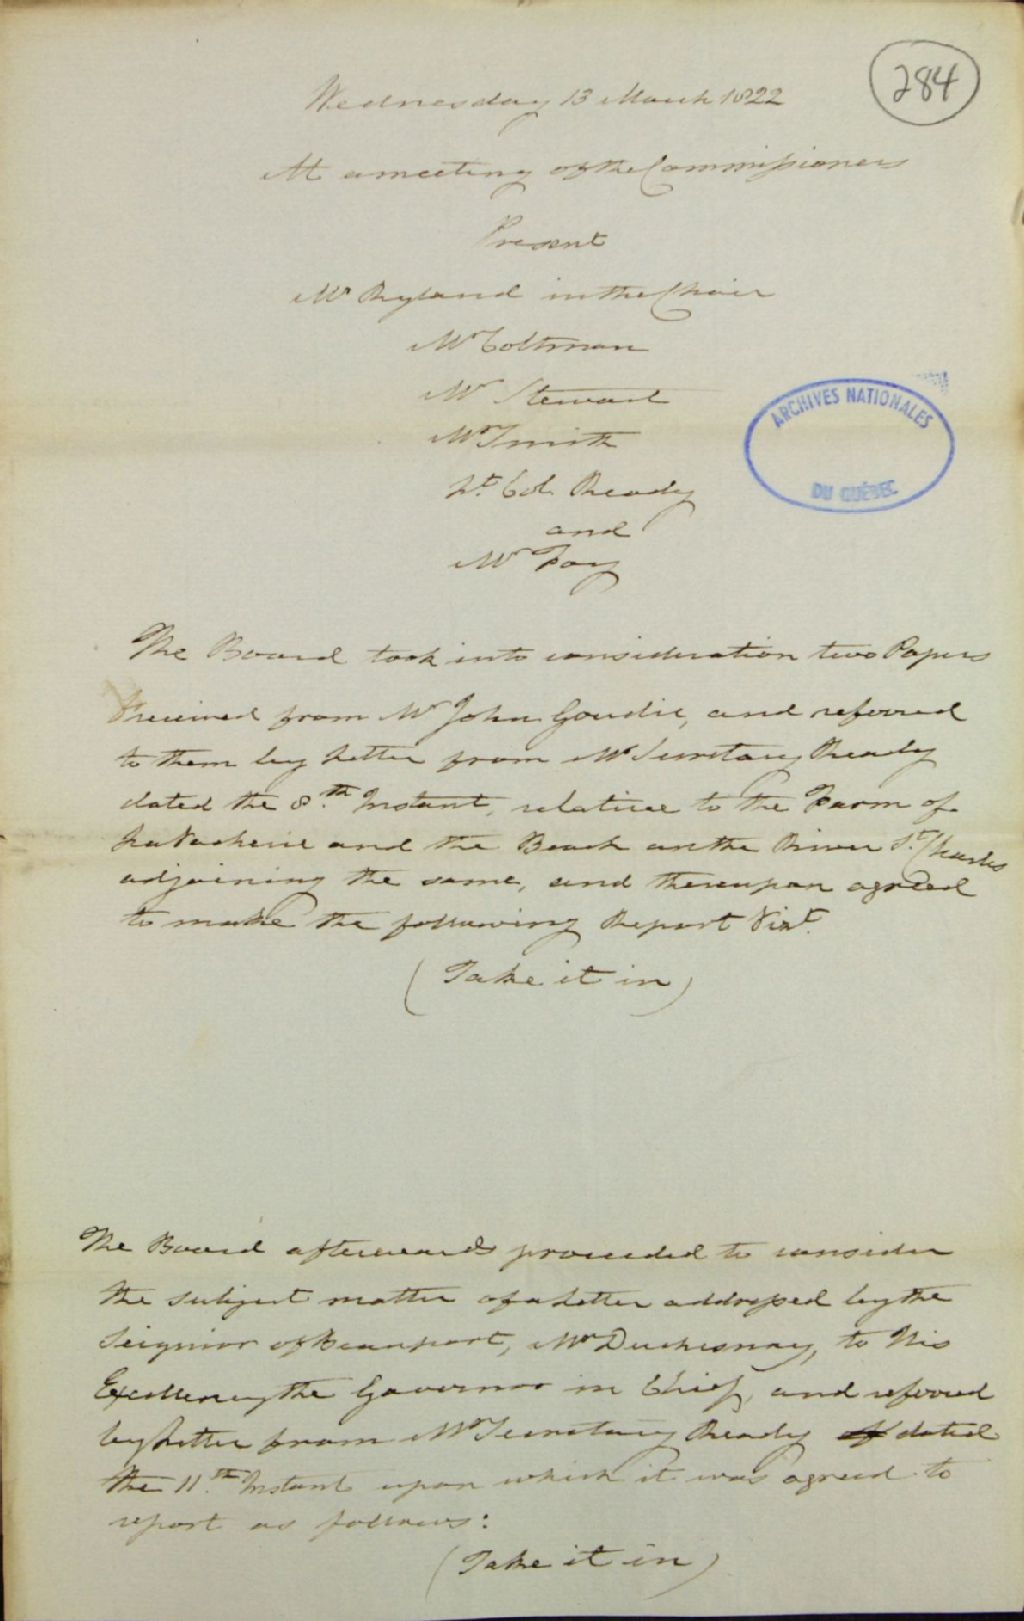 284
Wednesday 13 March 1822
At a meeting of the Commissioners
Present
Mr Ryland in the Chair
Mr Coltman
Mr Stewart
Mr Smith
Lt. Col. Ready
and
Mr Foy
ARCHIVES NATIONALES
DU QUÉBEC
The Board took into consideration two Papers
received from Mr John Goudie, and referred
to them by Letter from Mr Secretary Ready
dated the 8.th Instant, relative to the Farm of
LaVacherie and the Beach on the River St. Charles
adjoining the same, and thereupon agreed
to make the following Report Vizt.
(Take it in)
The Board afterwards proceeded to consider
the subject matter of a Letter addressed by the
Seignior of Beauport, Mr Duchesnay, to His
Excellency the Governor in Chief, and referred
by Letter from Mr Secretary Ready of dated
the 11.th Instant upon which it was agreed to
report as follows:
(Take it in)